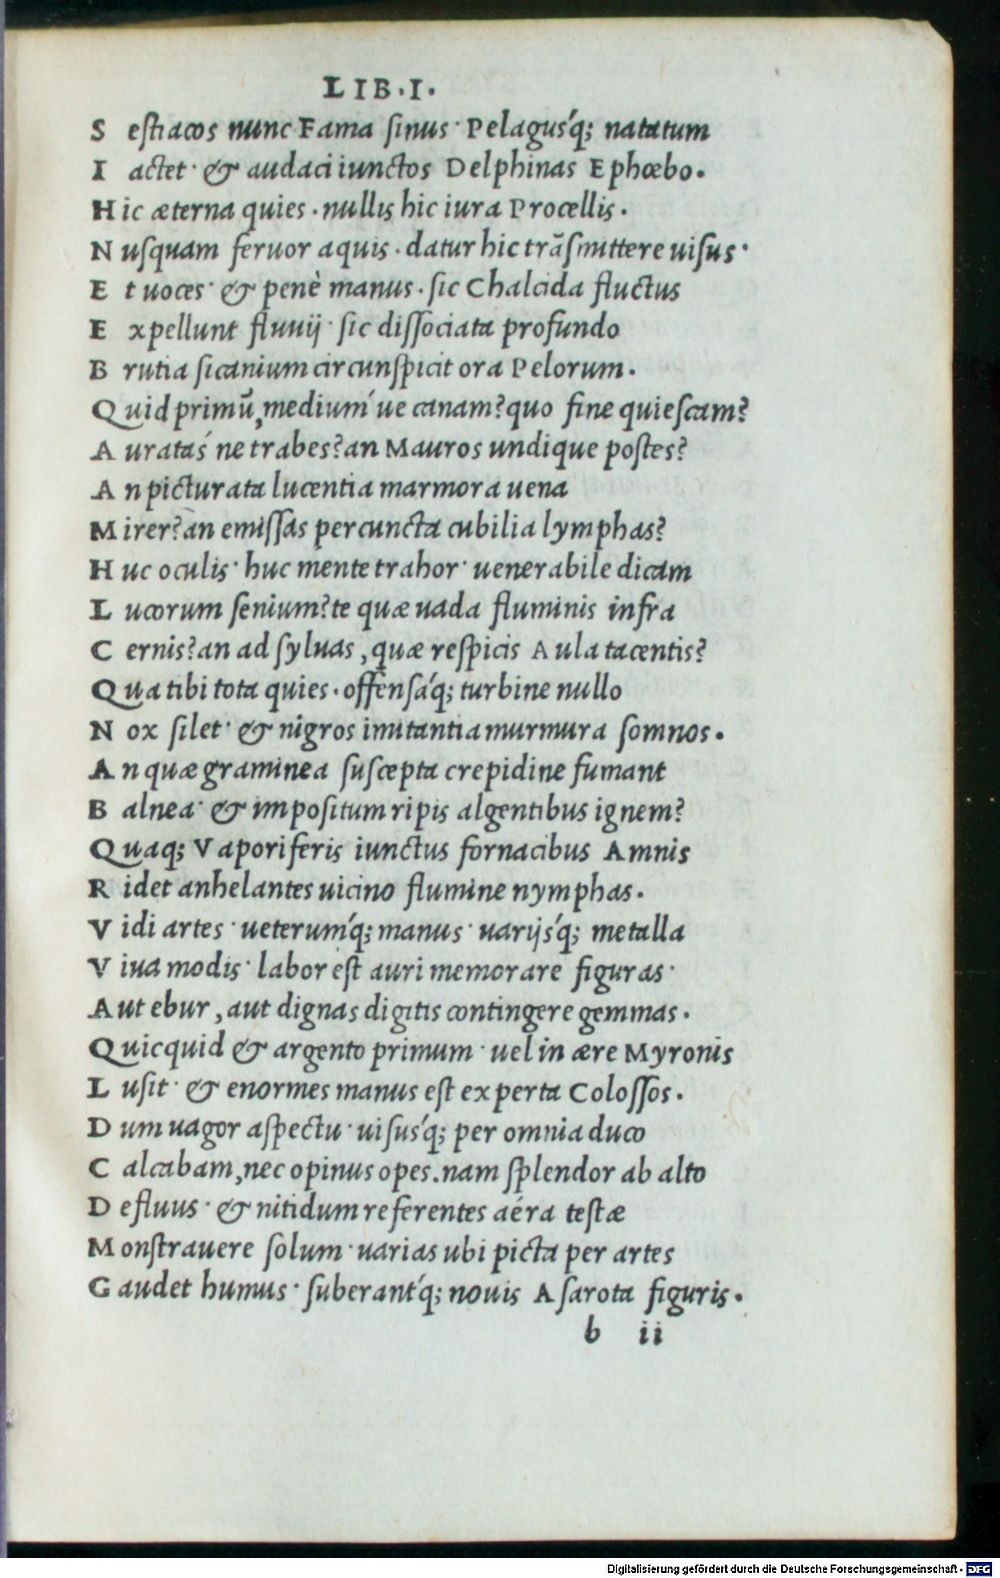 LIB.I.
S estiacos nunc Fama sinus· Pelagusq́; natatum
I actet· & audaci iunctos Delphinas Ephœbo.
H ic æterna quies. nullis hic iura Procellis.
N usquam feruor aquis. datur hic trãsmittere uisus·
E t uoces· & penè manus. sic Chalcida fluctus
E xpellunt fluuij· sic dissociata profundo
B rutia sicanium circunspicit ora Pelorum.
Quid primũ, medium´ue canam? quo fine quiescam?
A uratas´ne trabes? an Mauros undique postes?
A n picturata lucentia marmora uena
M irer? an emissas per cuncta cubilia lymphas?
H uc oculis· huc mente trahor· uenerabile dicam
L ucorum senium? te quæ uada fluminis infra
C ernis? an ad syluas, quæ respicis Aula tacentis?
Qua tibi tota quies. offensaq́; turbine nullo
N ox silet· & nigros imitantia murmura somnos.
A n quæ graminea suscepta crepidine fumant
B alnea· & impositum ripis algentibus ignem?
Quaq; Vaporiferis iunctus fornacibus Amnis
R idet anhelantes uicino flumine nymphas.
V idi artes· ueterumq́; manus· uarijsq́; metalla
V iua modis· labor est auri memorare figuras·
A ut ebur, aut dignas digitis contingere gemmas.
Quicquid & argento primum· uel in ære Myronis
L usit· & enormes manus est experta Colossos.
D um uagor aspectu· uisusq́; per omnia duco
C alcabam, nec opinus opes. nam splendor ab alto
D efluus· & nitidum referentes aéra testæ
M onstrauere solum· uarias ubi picta per artes
G audet humus· suberantq́; nouis Asarota figuris.
b ii
Digitalisierung gefördert durch die Deutsche Forschungsgemeinschaft · DFG